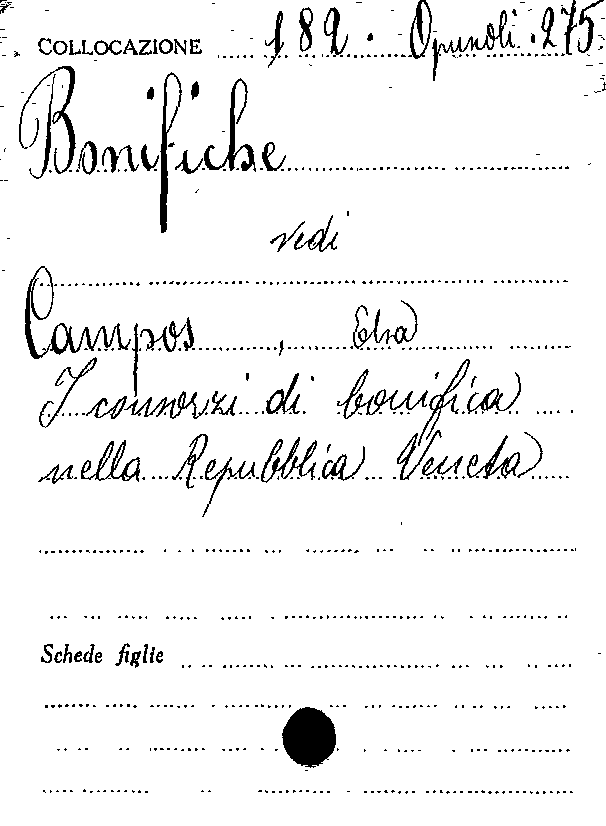 COLLOCAZIONE 182. Opuscoli. 275
Bonifiche
vedi
Campos, Elsa
I consorzi di bonifica
nella Repubblica Veneta
Schede figlie